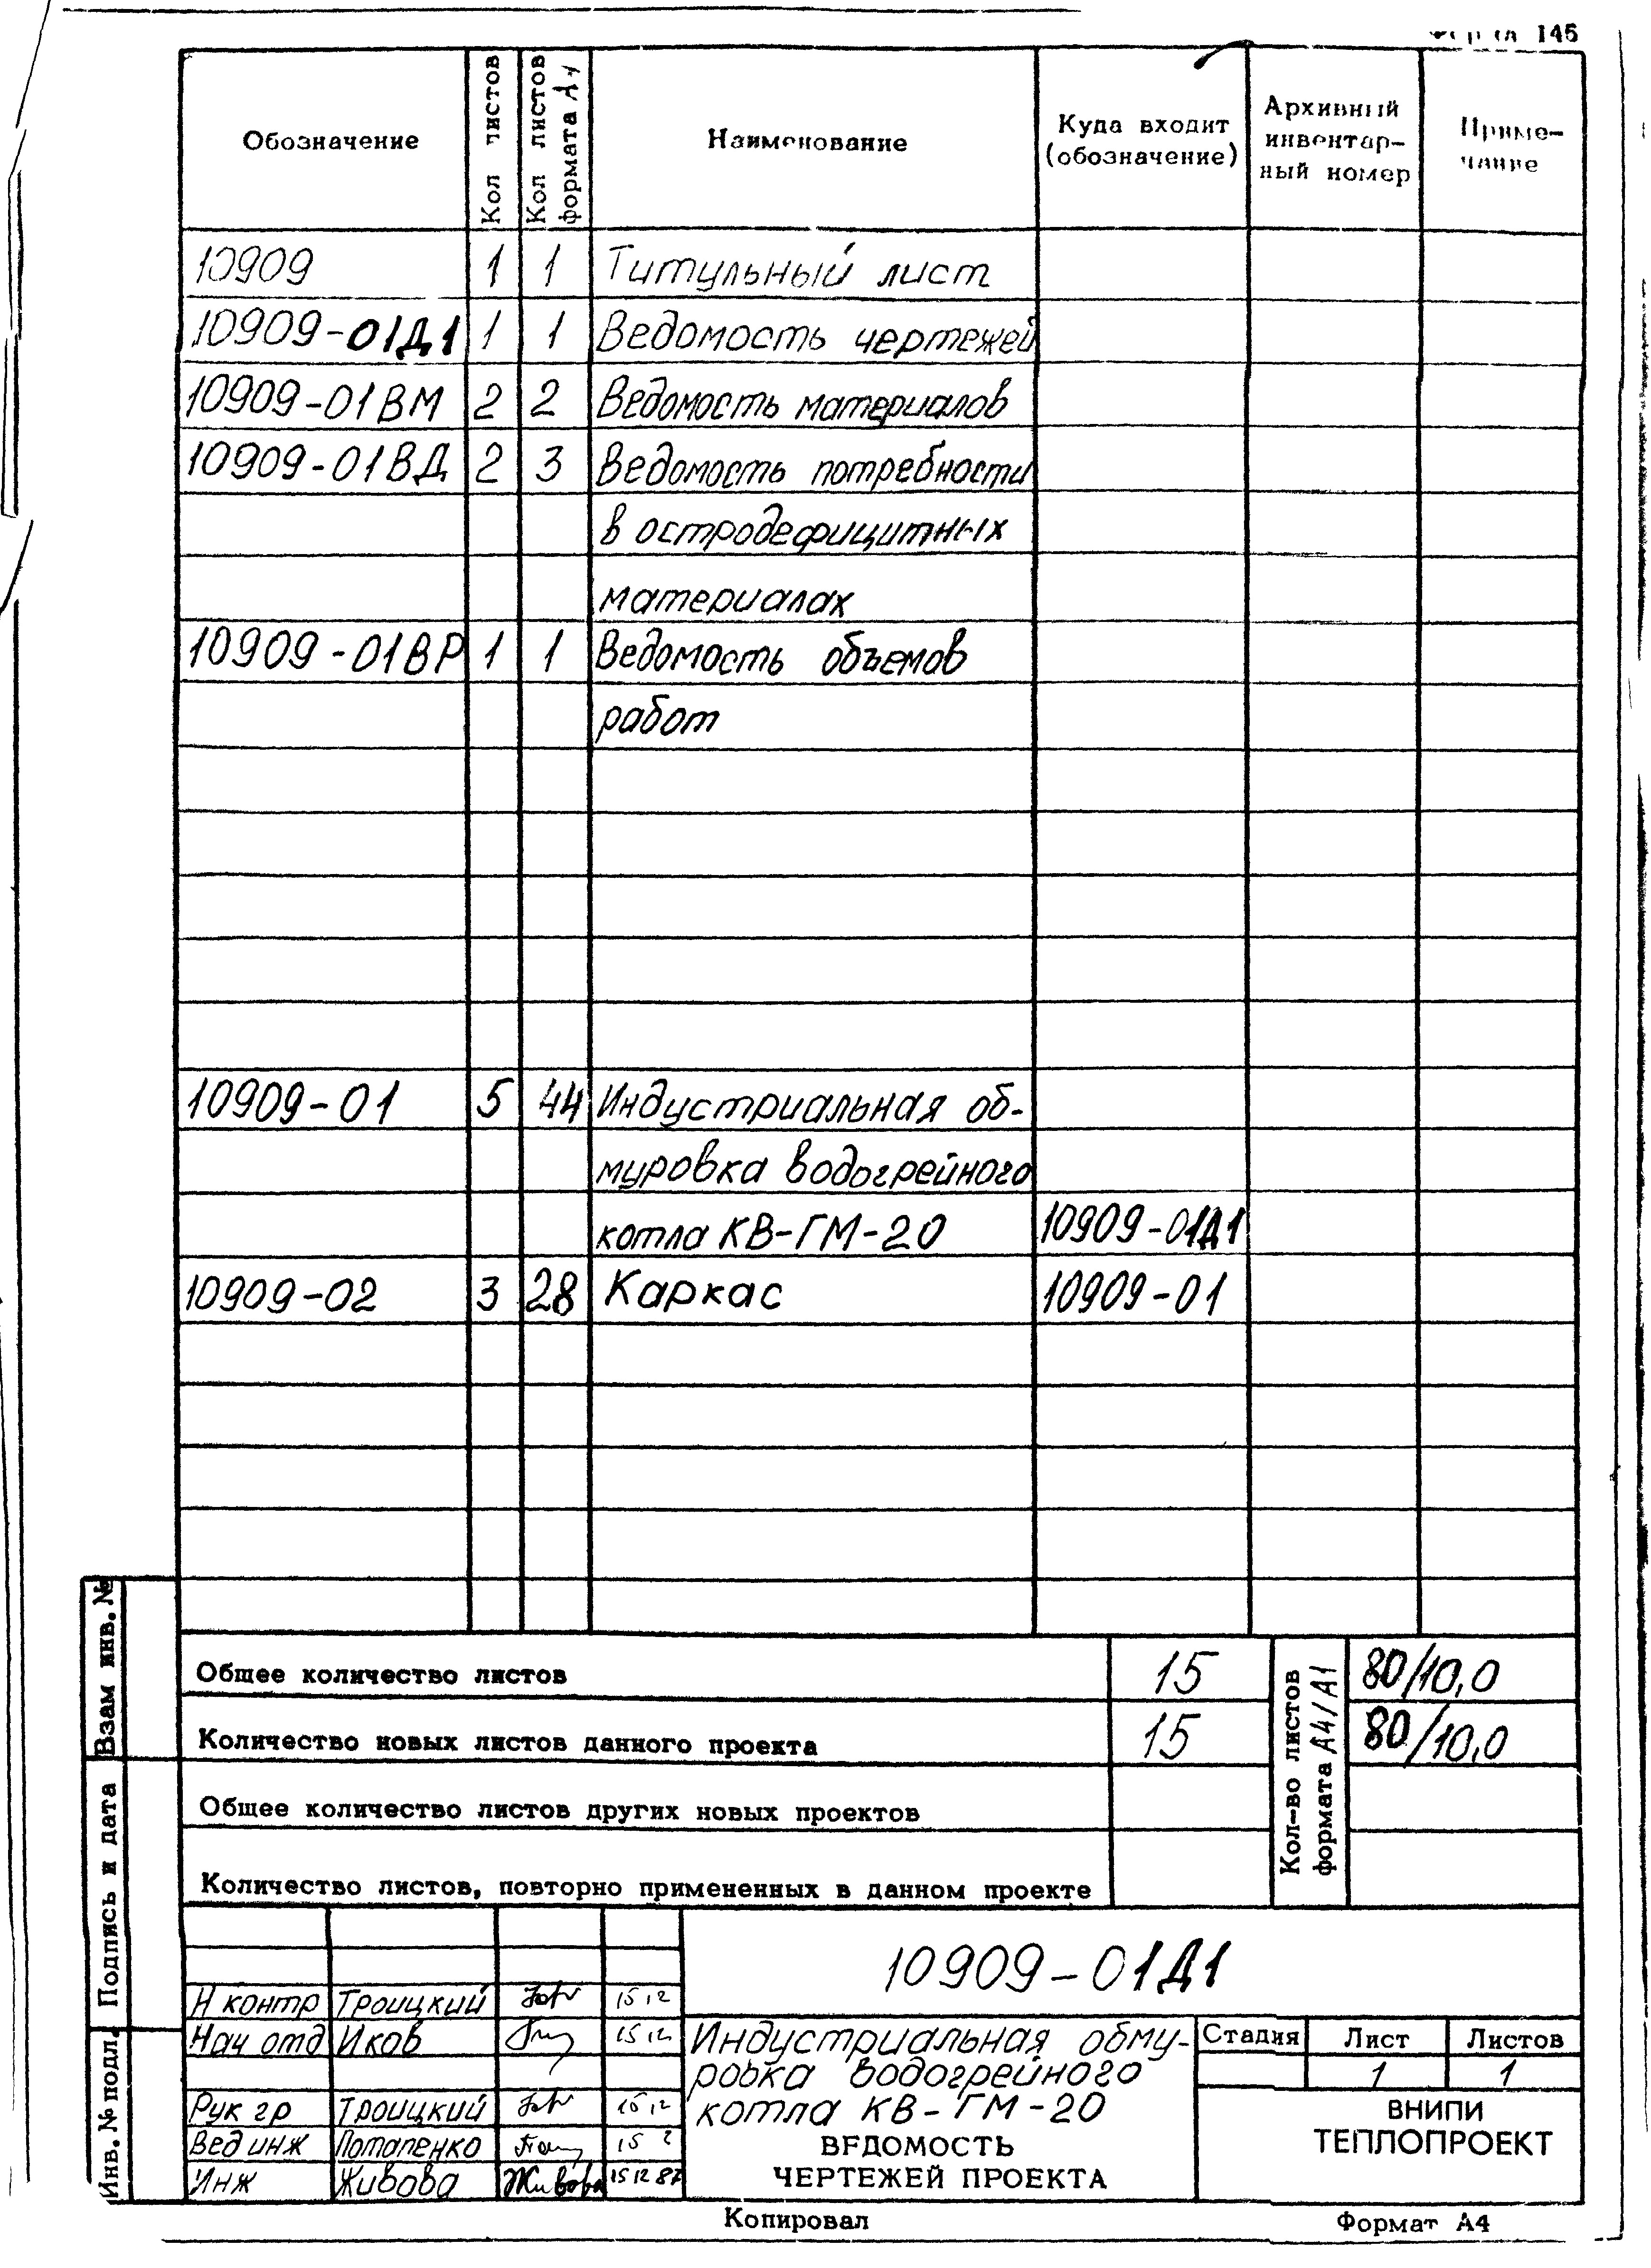 Форма 145
Обозначение
Кол листов
Кол листов
формата А4
Наименование
Куда входит
(обозначение)
Архивный
инвентар-
ный номер
Приме-
чание
10909 1 1 Титульный лист
10909-01Д1 1 1 Ведомость чертежей
10909-01ВМ 2 2 Ведомость материалов
10909-01ВД 2 3 Ведомость потребности
в остродефицитных
материалах
10909-01ВР 1 1 Ведомость объемов
работ
10909-01 5 44 Индустриальная об-
муровка водогрейного
котла КВ-ГМ-20 10909-01Д1
10909-02 3 28 Каркас 10909-01
Общее количество листов 15 80/10,0
Количество новых листов данного проекта 15 80/10,0
Общее количество листов других новых проектов
Количество листов, повторно примененных в данном проекте
Кол-во листов
формата А4/А1
Взам инв. №
Подпись и дата
Инв. № подл.
10909-01Д1
Н контр Троицкий 15 12
Нач отд Иков 15 12
Рук гр Троицкий 15 12
Вед инж Потапенко 15 2
Инж Живова Живова 15 12 87
Индустриальная обму-
ровка водогрейного
котла КВ-ГМ-20
ВЕДОМОСТЬ
ЧЕРТЕЖЕЙ ПРОЕКТА
Стадия Лист Листов
1 1
ВНИПИ
ТЕПЛОПРОЕКТ
Копировал
Формат А4